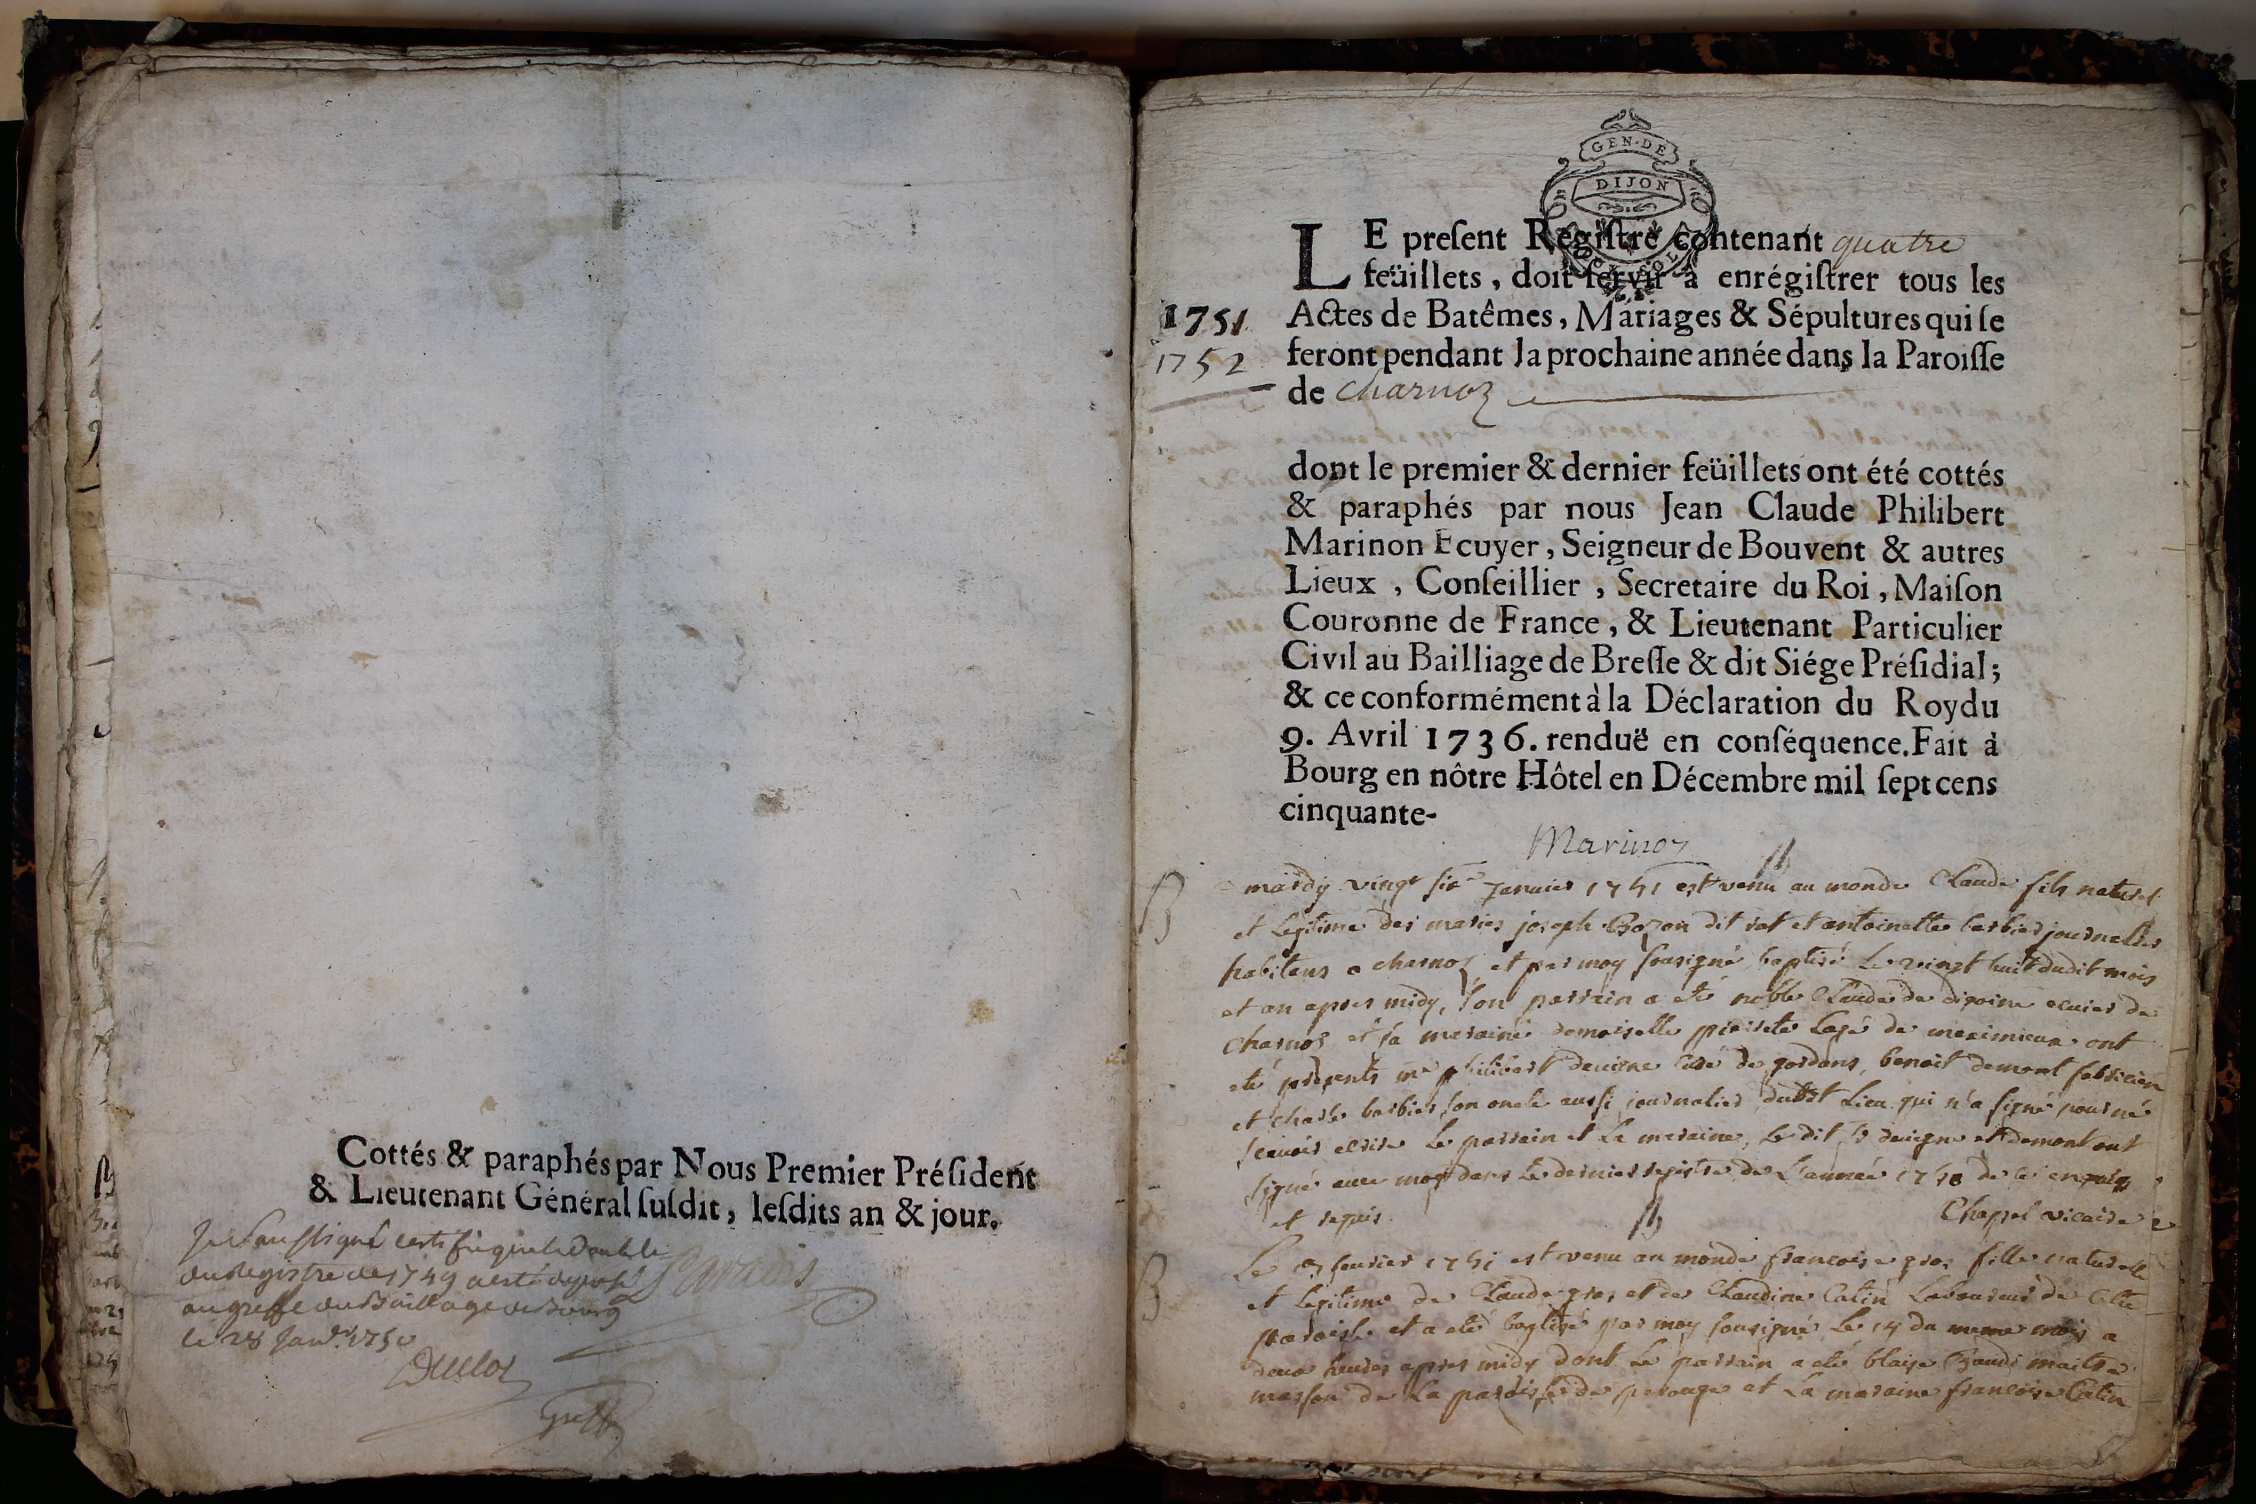 Cottés & paraphés par Nous Premier Préſident
& Lieutenant Général ſuſdit, leſdits an & jour.
Je Soussigné certifie que le double
du Registre de 1749 a esté deposé
au greffe du Bailliage de Bourg
le 28 Janv.r 1750
GEN·DE
DIJON
LE preſent Regiſtre contenant quatre
feüillets, doit ſervir à enrégiſtrer tous les
1751
Actes de Batêmes, Mariages & Sépultures qui ſe
1752
feront pendant la prochaine année dans la Paroiſſe
de Charnoz
dont le premier & dernier feüillets ont été cottés
& paraphés par nous Jean Claude Philibert
Marinon Ecuyer, Seigneur de Bouvent & autres
Lieux, Conſeillier, Secretaire du Roi, Maiſon
Couronne de France, & Lieutenant Particulier
Civil au Bailliage de Breſſe & dit Siége Préſidial;
& ce conformément à la Déclaration du Roy du
9. Avril 1736. renduë en conſéquence. Fait à
Bourg en nôtre Hôtel en Décembre mil ſept cens
cinquante-
Marinon
B
mardy vingt six janvier 1751 est venu au monde Claude fils naturel
et legitime des maries joseph Bozon dit rat et antoinette barbier journaliers
habitans a charnoz et par moy sousigné baptisé le vingt huit dudit mois
et an apres midy, son parrain a eté noble Claude de digoine ecuier de
charnoz et sa maraine demoiselle de meximieux ont
eté presents me philibert cure de gordans, benoit demont fabricien
et charle barbier son oncle aussi journalier dudit Lieu qui n'a signé pour ne
scavoir ecrire le parrain et la maraine, le dit sr et demont ont
signé avec moy dans le dernier registre de l'année 1750 de ce enquis
et requis.
Chapel vicaire
B
Le fevrier 1751 est venu au monde francoise gros fille naturelle
et legitime de Claude gros et de Claudine Catin Laboureur de cette
paroisse et a eté baptisé par moy sousigné le 14 du meme mois a
deux heures apres midy dont le parrain a eté blaise maitre
masson de la paroisse de perouge et la maraine francoise Catin